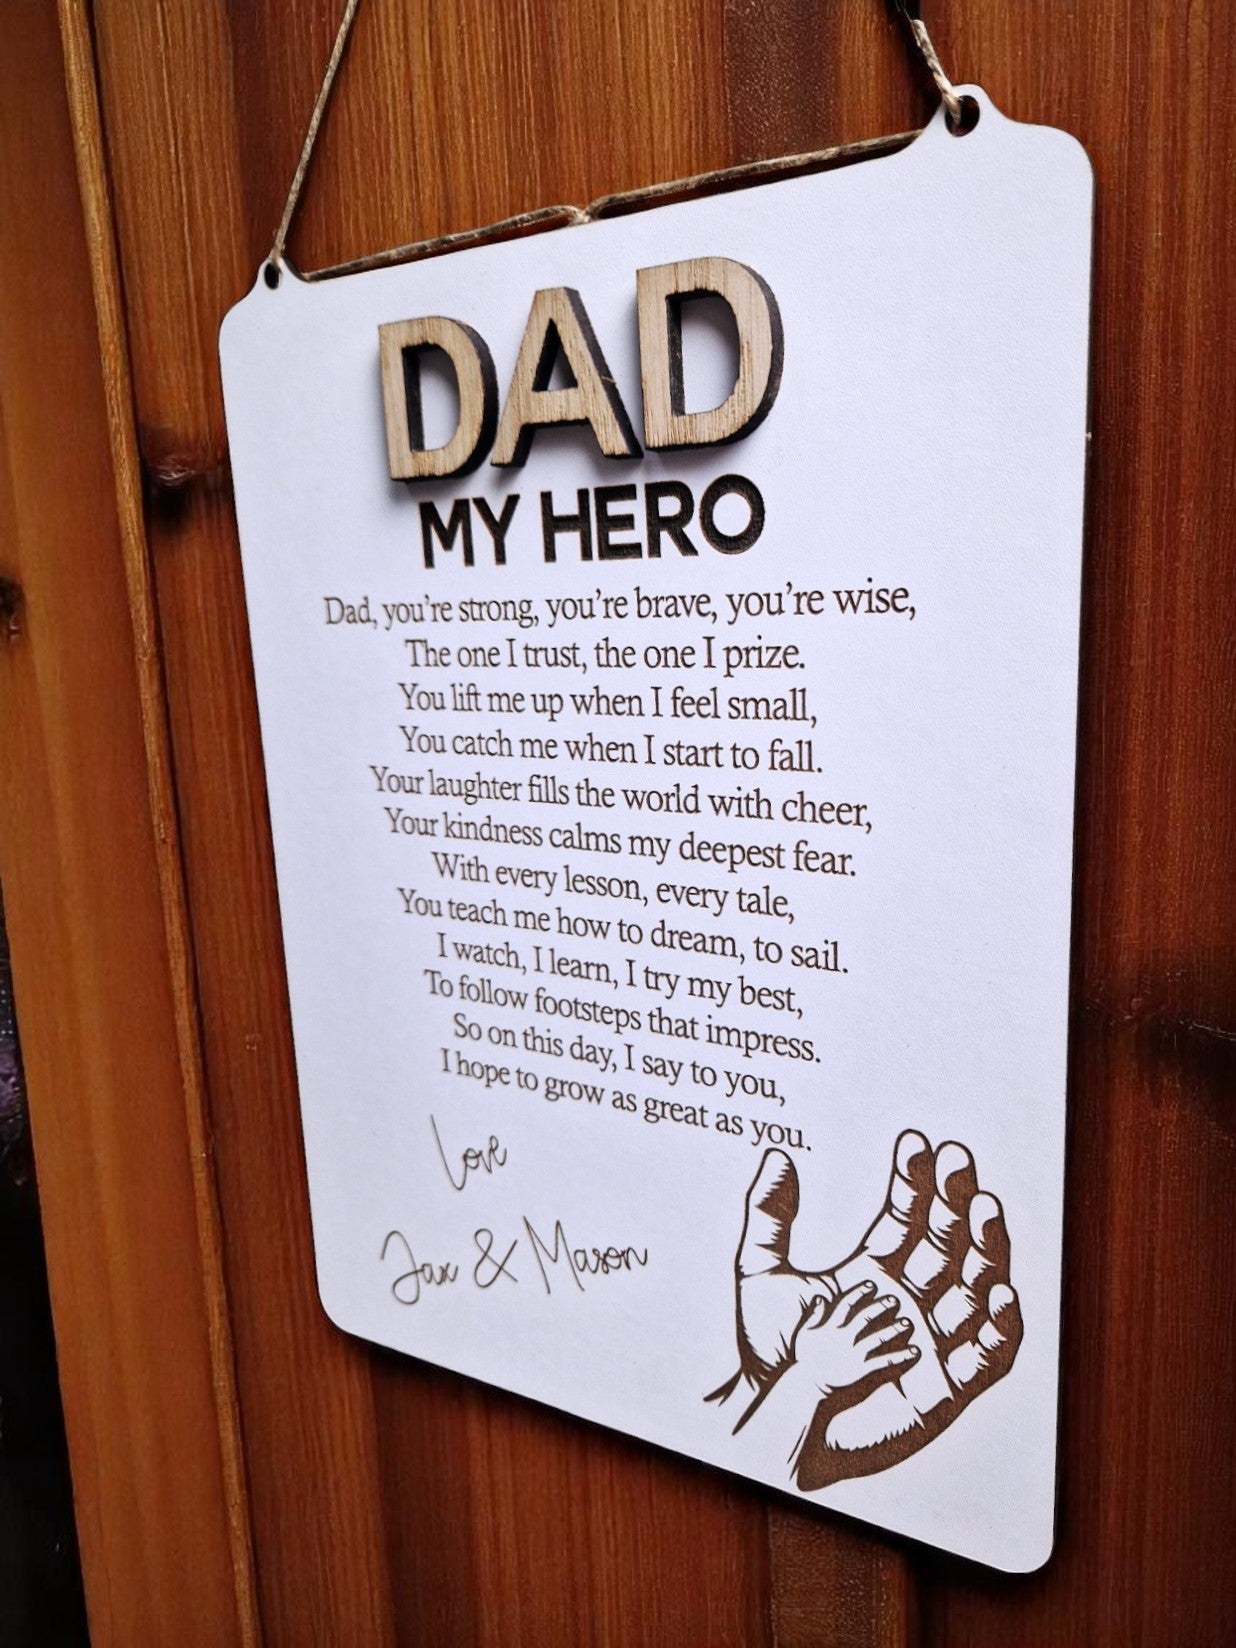 DAD
MY HERO
Dad, you're strong, you're brave, you're wise,
The one I trust, the one I prize.
You lift me up when I feel small,
You catch me when I start to fall.
Your laughter fills the world with cheer,
Your kindness calms my deepest fear.
With every lesson, every tale,
You teach me how to dream, to sail.
I watch, I learn, I try my best,
To follow footsteps that impress.
So on this day, I say to you,
I hope to grow as great as you.
Love
Jax & Mason